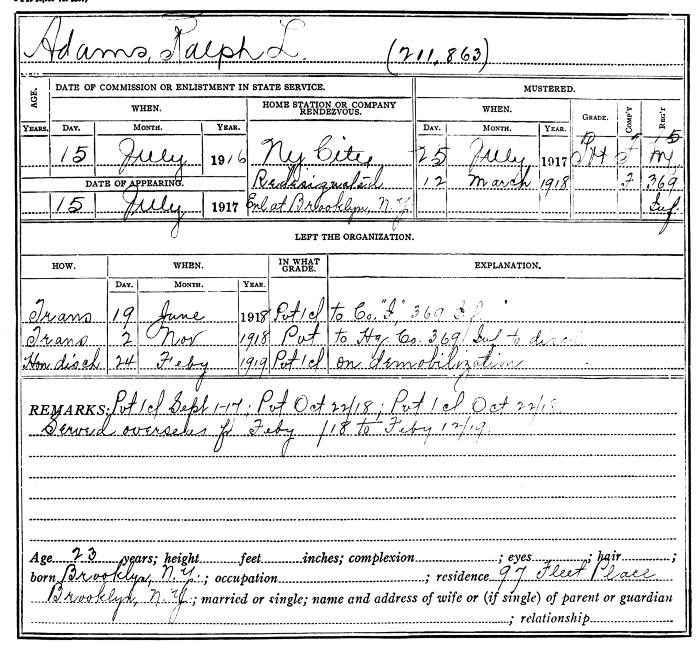 Adams, Ralph L. (211,863)
AGE. DATE OF COMMISSION OR ENLISTMENT IN STATE SERVICE. MUSTERED.
WHEN. HOME STATION OR COMPANY RENDEZVOUS. WHEN. GRADE. COMP'Y REG'T
YEARS. DAY. MONTH. YEAR. DAY. MONTH. YEAR.
15 July 1916 Ny City 25 July 1917 F 15 Ny
DATE OF APPEARING. Redesignated 12 March 1918 F 369
15 July 1917 Enl at Brooklyn, N.Y. Inf
LEFT THE ORGANIZATION.
HOW. WHEN. IN WHAT GRADE. EXPLANATION.
DAY. MONTH. YEAR.
Trans 19 June 1918 Pvt 1cl to Co. 369
Trans 2 Nov 1918 Pvt to Hq Co. 369 Inf to disch
Hon disch 24 Feby 1919 Pvt 1cl on demobilization
REMARKS: Pvt 1cl Sept 1-17; Pvt Oct 22/18; Pvt 1cl Oct 22/18
Served overseas Feby /18 to Feby 12/19.
Age 23 years; height feet inches; complexion ; eyes ; hair ;
born Brooklyn, N.Y. ; occupation ; residence 97 Fleet Place
Brooklyn, N.Y. ; married or single; name and address of wife or (if single) of parent or guardian
; relationship